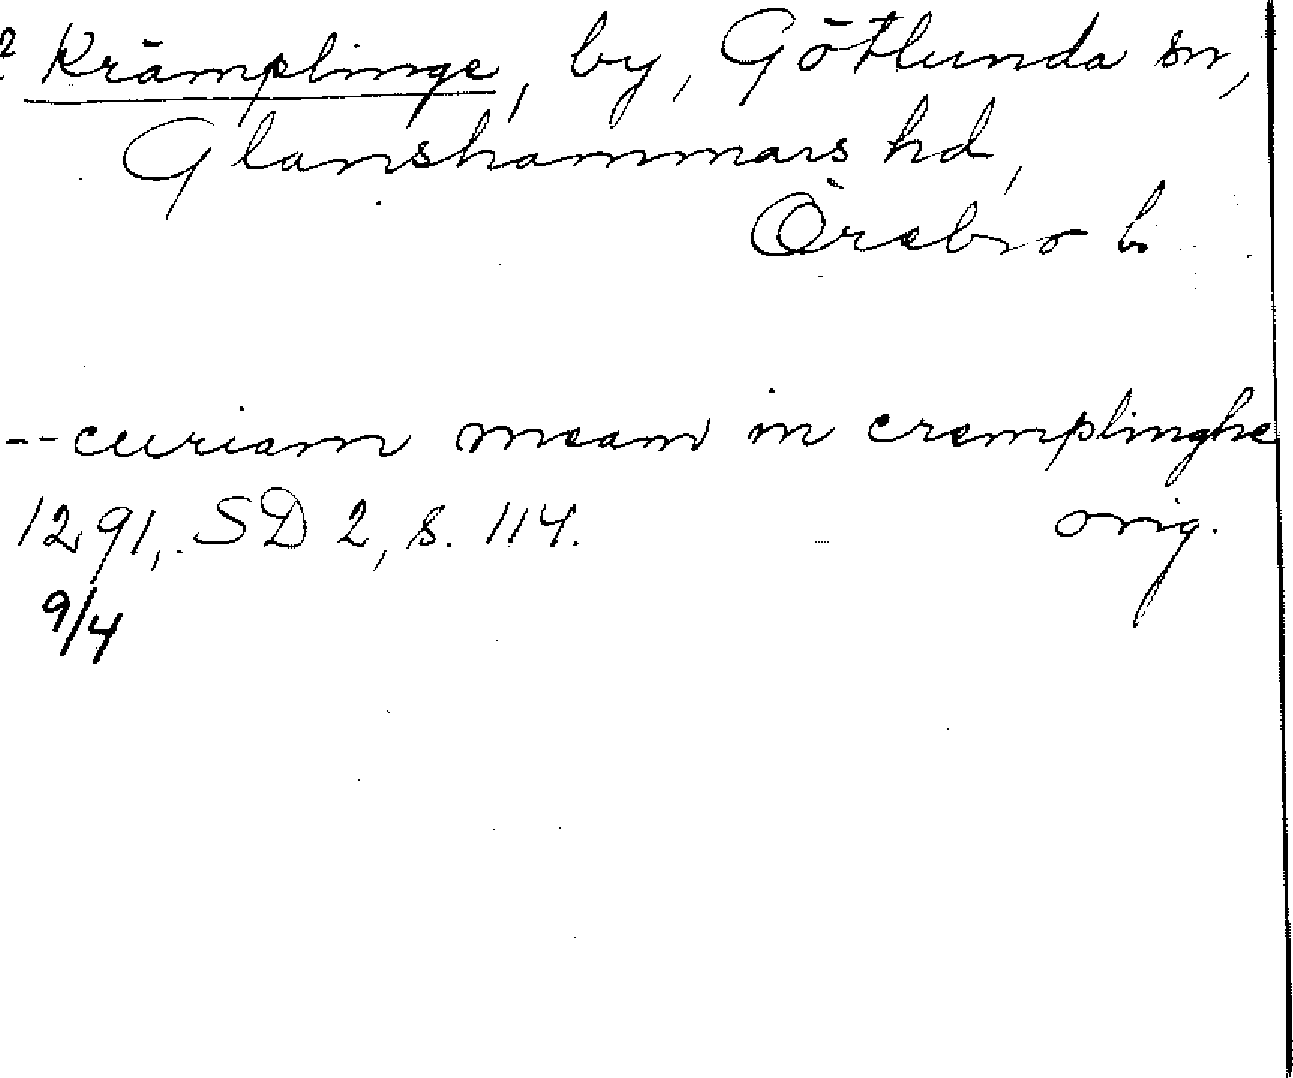 ? Krämplinge, by, Götlunda sn,
Glanshammars hd,
Örebro l.
-- curiam meam in cremplinghe
1291, SD 2, s. 114. orig.
9/4